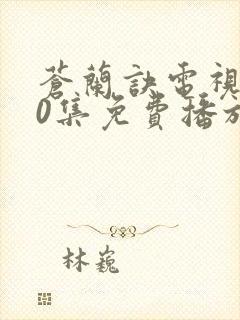 蒼蘭訣電視
0集免費播放
林巍